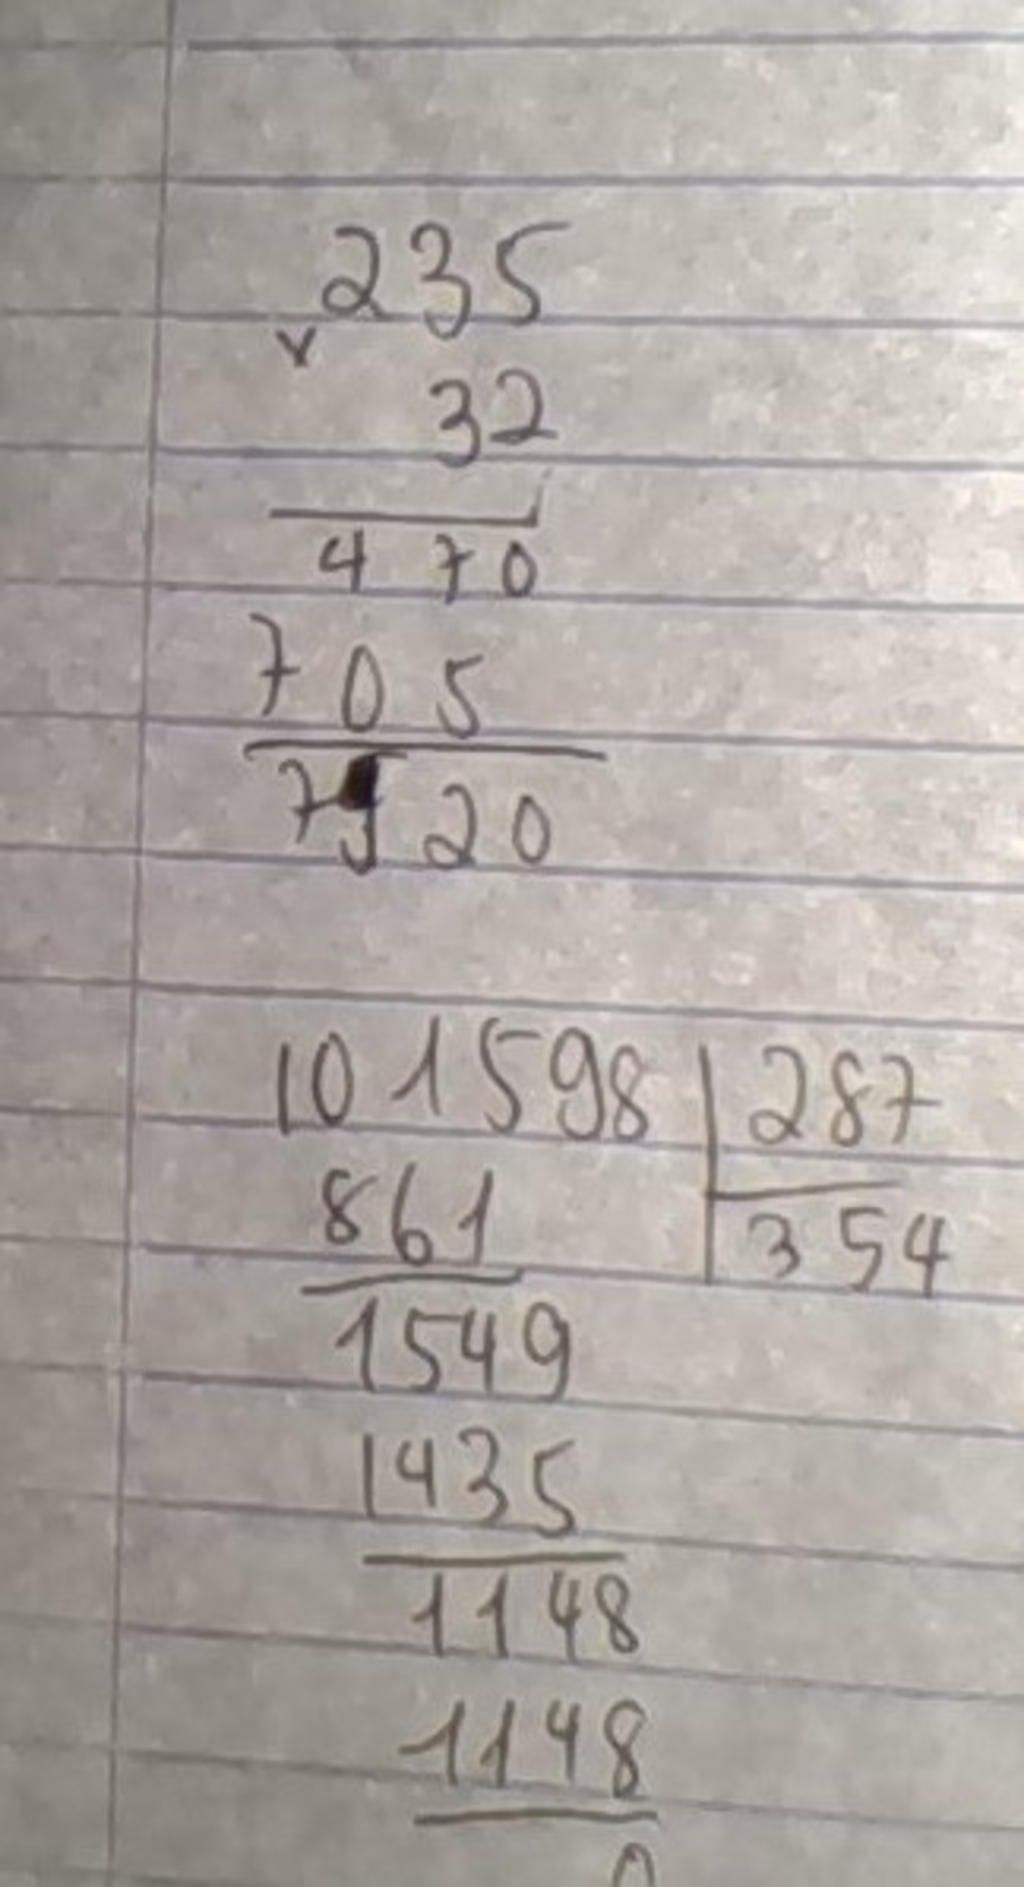 235
x
32
470
705
7520
101598 | 287
861 354
1549
1435
1148
1148
0